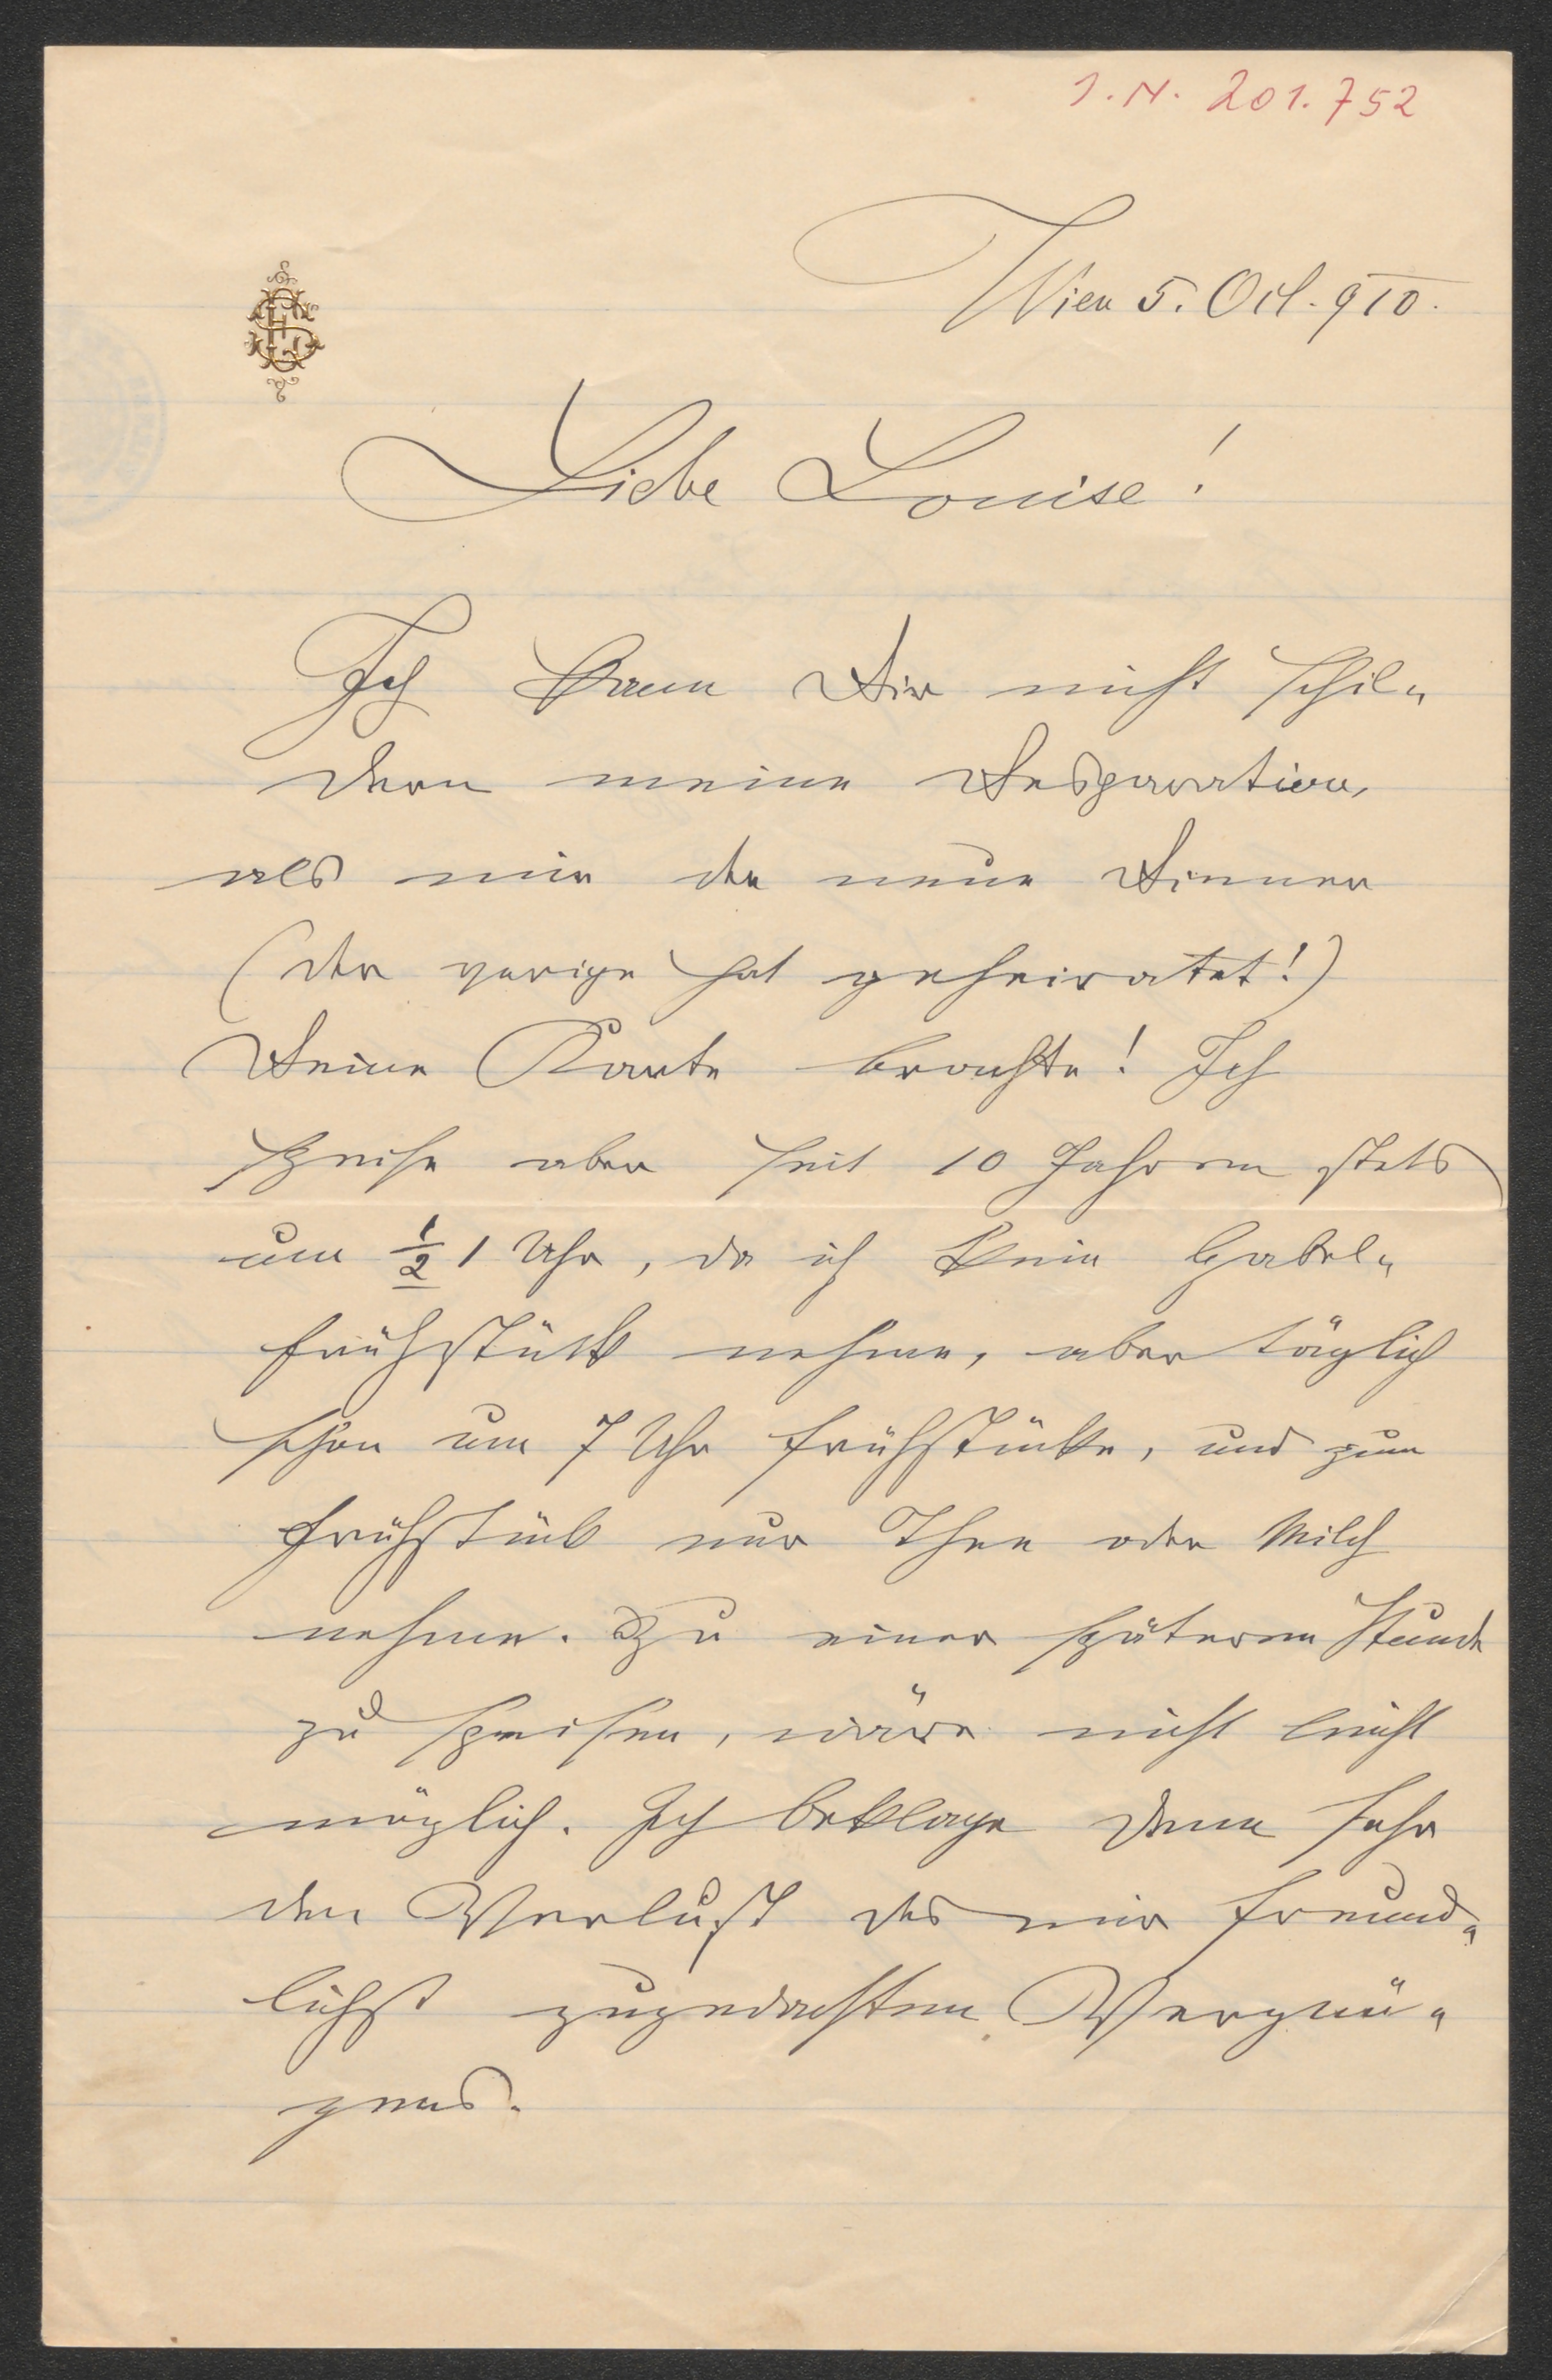 I.N. 201.752
Wien 5. Oct. 910.
Liebe Louise!
Ich kann Dir nicht schil-
dern meine Desperation,
als mir der neue Diener
(der vorige hat geheiratet!)
Deine Karte brachte! Ich
speise aber seit 10 Jahren stets
um ½ 1 Uhr, da ich kein Gabel-
frühstück nehme, aber täglich
schon um 7 Uhr frühstücke, und zum
Frühstück nur Thee oder Milch
nehme. Zu einer späteren Stunde
zu speisen, wäre nicht leicht
möglich. Ich beklage denn sehr
den Verlust des mir freund-
lichst zugedachten Vergnü-
gens.